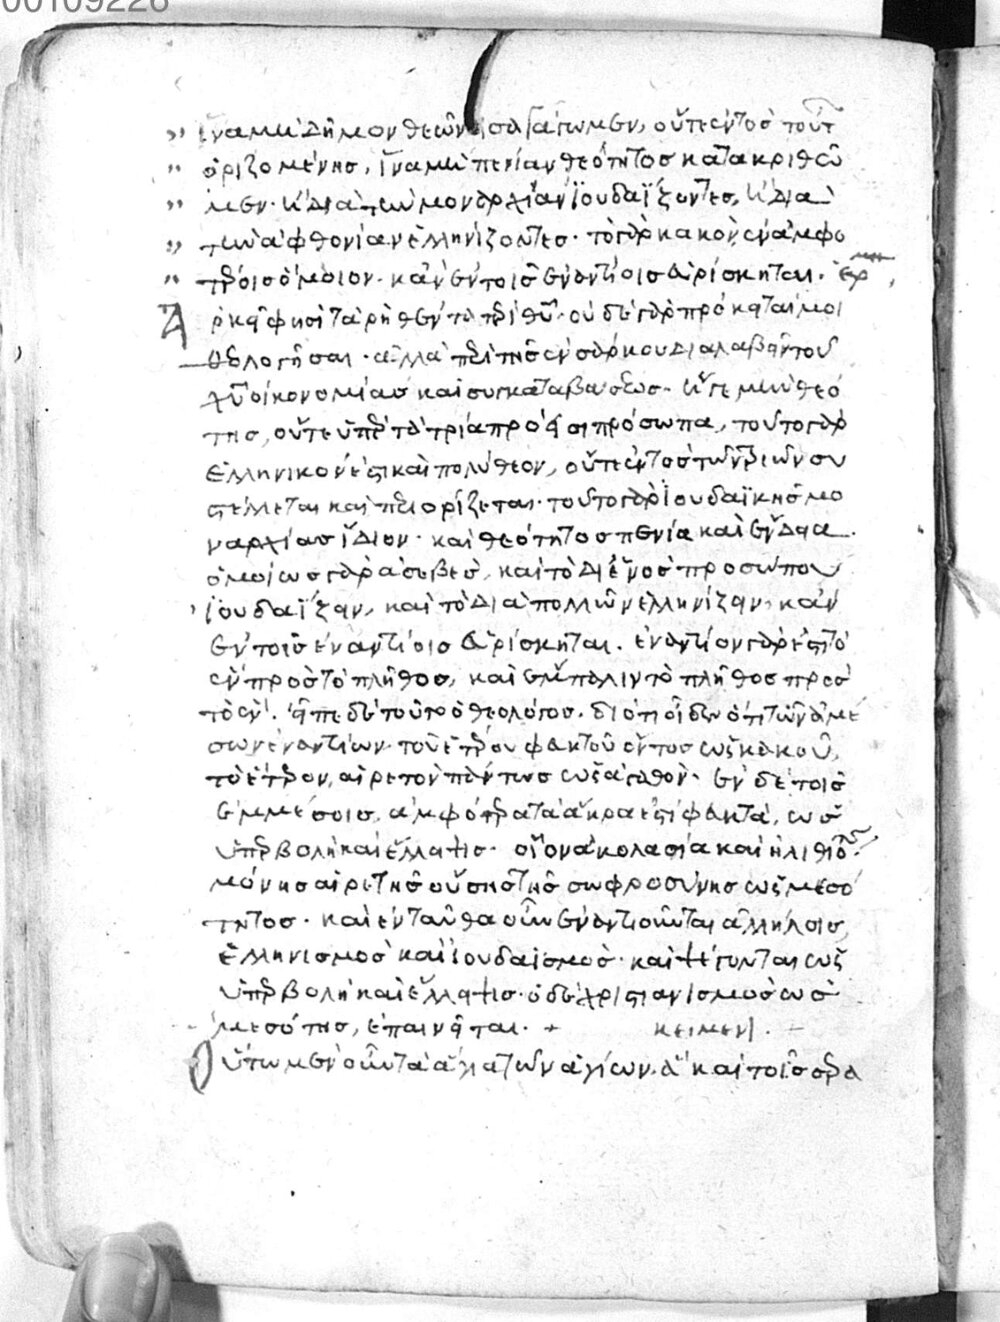 00109228
ἵνα μὴ δῆμον θεῶν εἰσαγάγωμεν, οὔτε ἐντὸς τούτων
ὁριζομένης, ἵνα μὴ πενίαν θεότητος κατακριθῶ
μεν· ἢ διὰ τὴν μοναρχίαν ἰουδαΐζοντες, ἢ διὰ
τὴν ἀφθονίαν ἑλληνίζοντες· τὸ γὰρ κακὸν ἐν ἀμφο
τέροις ὅμοιον· κἂν ἐν τοῖς ἐναντίοις εὑρίσκηται. ἑρμ
Ἀρκεῖ φησὶ τὰ ῥηθέντα περὶ θεοῦ· οὐδὲ γὰρ πρόκειταί μοι
θεολογῆσαι· ἀλλὰ περὶ τῆς ἐν σαρκὶ διαλαβεῖν τοῦ
χριστοῦ οἰκονομίας καὶ συγκαταβάσεως· οὔτε μὴν θεό
της, οὔτε ὑπὲρ τὰ τρία πρόεισι πρόσωπα, τοῦτο γὰρ
ἑλληνικόν ἐστι καὶ πολύθεον, οὔτε ἐντὸς τῶν τριῶν συ
στέλλεται καὶ περιορίζεται· τοῦτο γὰρ ἰουδαϊκῆς μο
ναρχίας ἴδιον· καὶ θεότητος πενία καὶ ἔνδεια.
ὁμοίως γὰρ ἀσεβὲς, καὶ τὸ δι' ἑνὸς προσώπου
ἰουδαΐζειν, καὶ τὸ διὰ πολλῶν ἑλληνίζειν, κἂν
ἐν τοῖς ἐναντίοις εὑρίσκηται. ἐναντίον γάρ ἐστι τὸ
ἓν πρὸς τὸ πλῆθος, καὶ ἔμπαλιν τὸ πλῆθος πρὸς
τὸ ἕν. εἶπε δὲ τοῦτο ὁ θεολόγος. διότι οἶδεν ὅτι τῶν ἀμέ
σων ἐναντίων τοῦ ἑτέρου φευκτοῦ ὄντος ὡς κακοῦ,
τὸ ἕτερον, αἱρετὸν πάντως ὡς ἀγαθὸν· ἐν δὲ τοῖς
ἐμμέσοις, ἀμφότερα τὰ ἄκρα ἐστὶ φευκτὰ, ὡς
ὑπερβολὴ καὶ ἔλλειψις· οἷον ἀκολασία καὶ ἠλιθιότης·
μόνης αἱρετῆς οὔσης τῆς σωφροσύνης ὡς μεσό
τητος· καὶ ἐνταῦθα οὖν ἐναντιοῦνται ἀλλήλοις,
ἑλληνισμὸς καὶ ἰουδαϊσμὸς· καὶ ψέγονται ὡς
ὑπερβολὴ καὶ ἔλλειψις· ὁ δὲ χριστιανισμὸς ὡς
μεσότης, ἐπαινεῖται. + κείμεν
Οὕτω μὲν οὖν τὰ ἅγια τῶν ἁγίων. ἃ καὶ τοῖς σερα